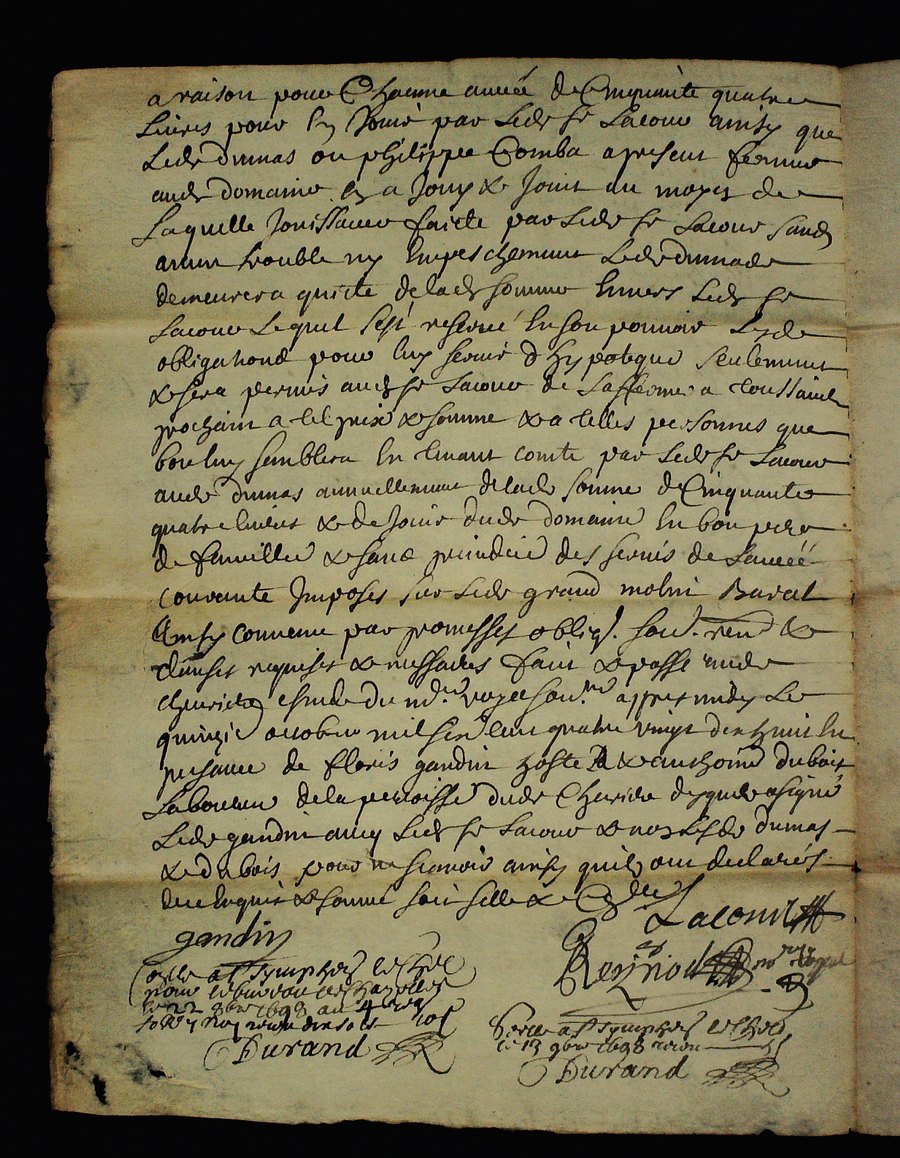 a raison pour Chacune année de Cinquante quatre
Livres pour En Jouir par Ledt Sr Lacour ainsy que
Ledt dumas ou philippe Comba apresent fermier
audt domaine En a Jouy & Jouit au moyen de
Laquelle Jouissance faicte par Ledt Sr Lacour Sans
aucun trouble ny Empeschement Ledt dumas
demeurera quicte de ladt somme Envers Ledt Sr
Lacour Lequel sest reservé En son pouvoir
obligations pour luy servir d'hypoteque seulement
& sera permis audt Sr Lacour de Lafferme a toussaint
prochain a tel prix & somme & a telles personnes que
bon luy semblera En tenant comte par Ledt Sr Lacour
audt dumas annuellement deladt somme de Cinquante
quatre livres & de Jouir dudt domaine En bon pere
de famille & sans des servis de Lannée
courante Imposes sur Ledt grand molin
Ainsy convenu par promesses oblig. soub. ren. &
clauses requises & nessaires fait & passé audt
cheuriere estude du nore royal soubné appres midy Le
quinzie octobre mil six cent quatre vingt dix huit En
presance de floris gandin hoste & anthoine dubois
Laboureur dela perroisse dudt Cheuriere a signé
Ledt gandin avec Ledt Sr Lacour & non Lesdt dumas
& dubois pour ne scavoir ainsy quils ont declarés
de ce Enquis & sommé
Lacour
gandin
Reynod nore Royal
Con a St Symphorien le Chel
pour le bureau de Chazelles
le 22 8bre 1698 au 4
Durand
Scellé a St Symphorien le Chel
le 13 9bre 1698 recu
Durand